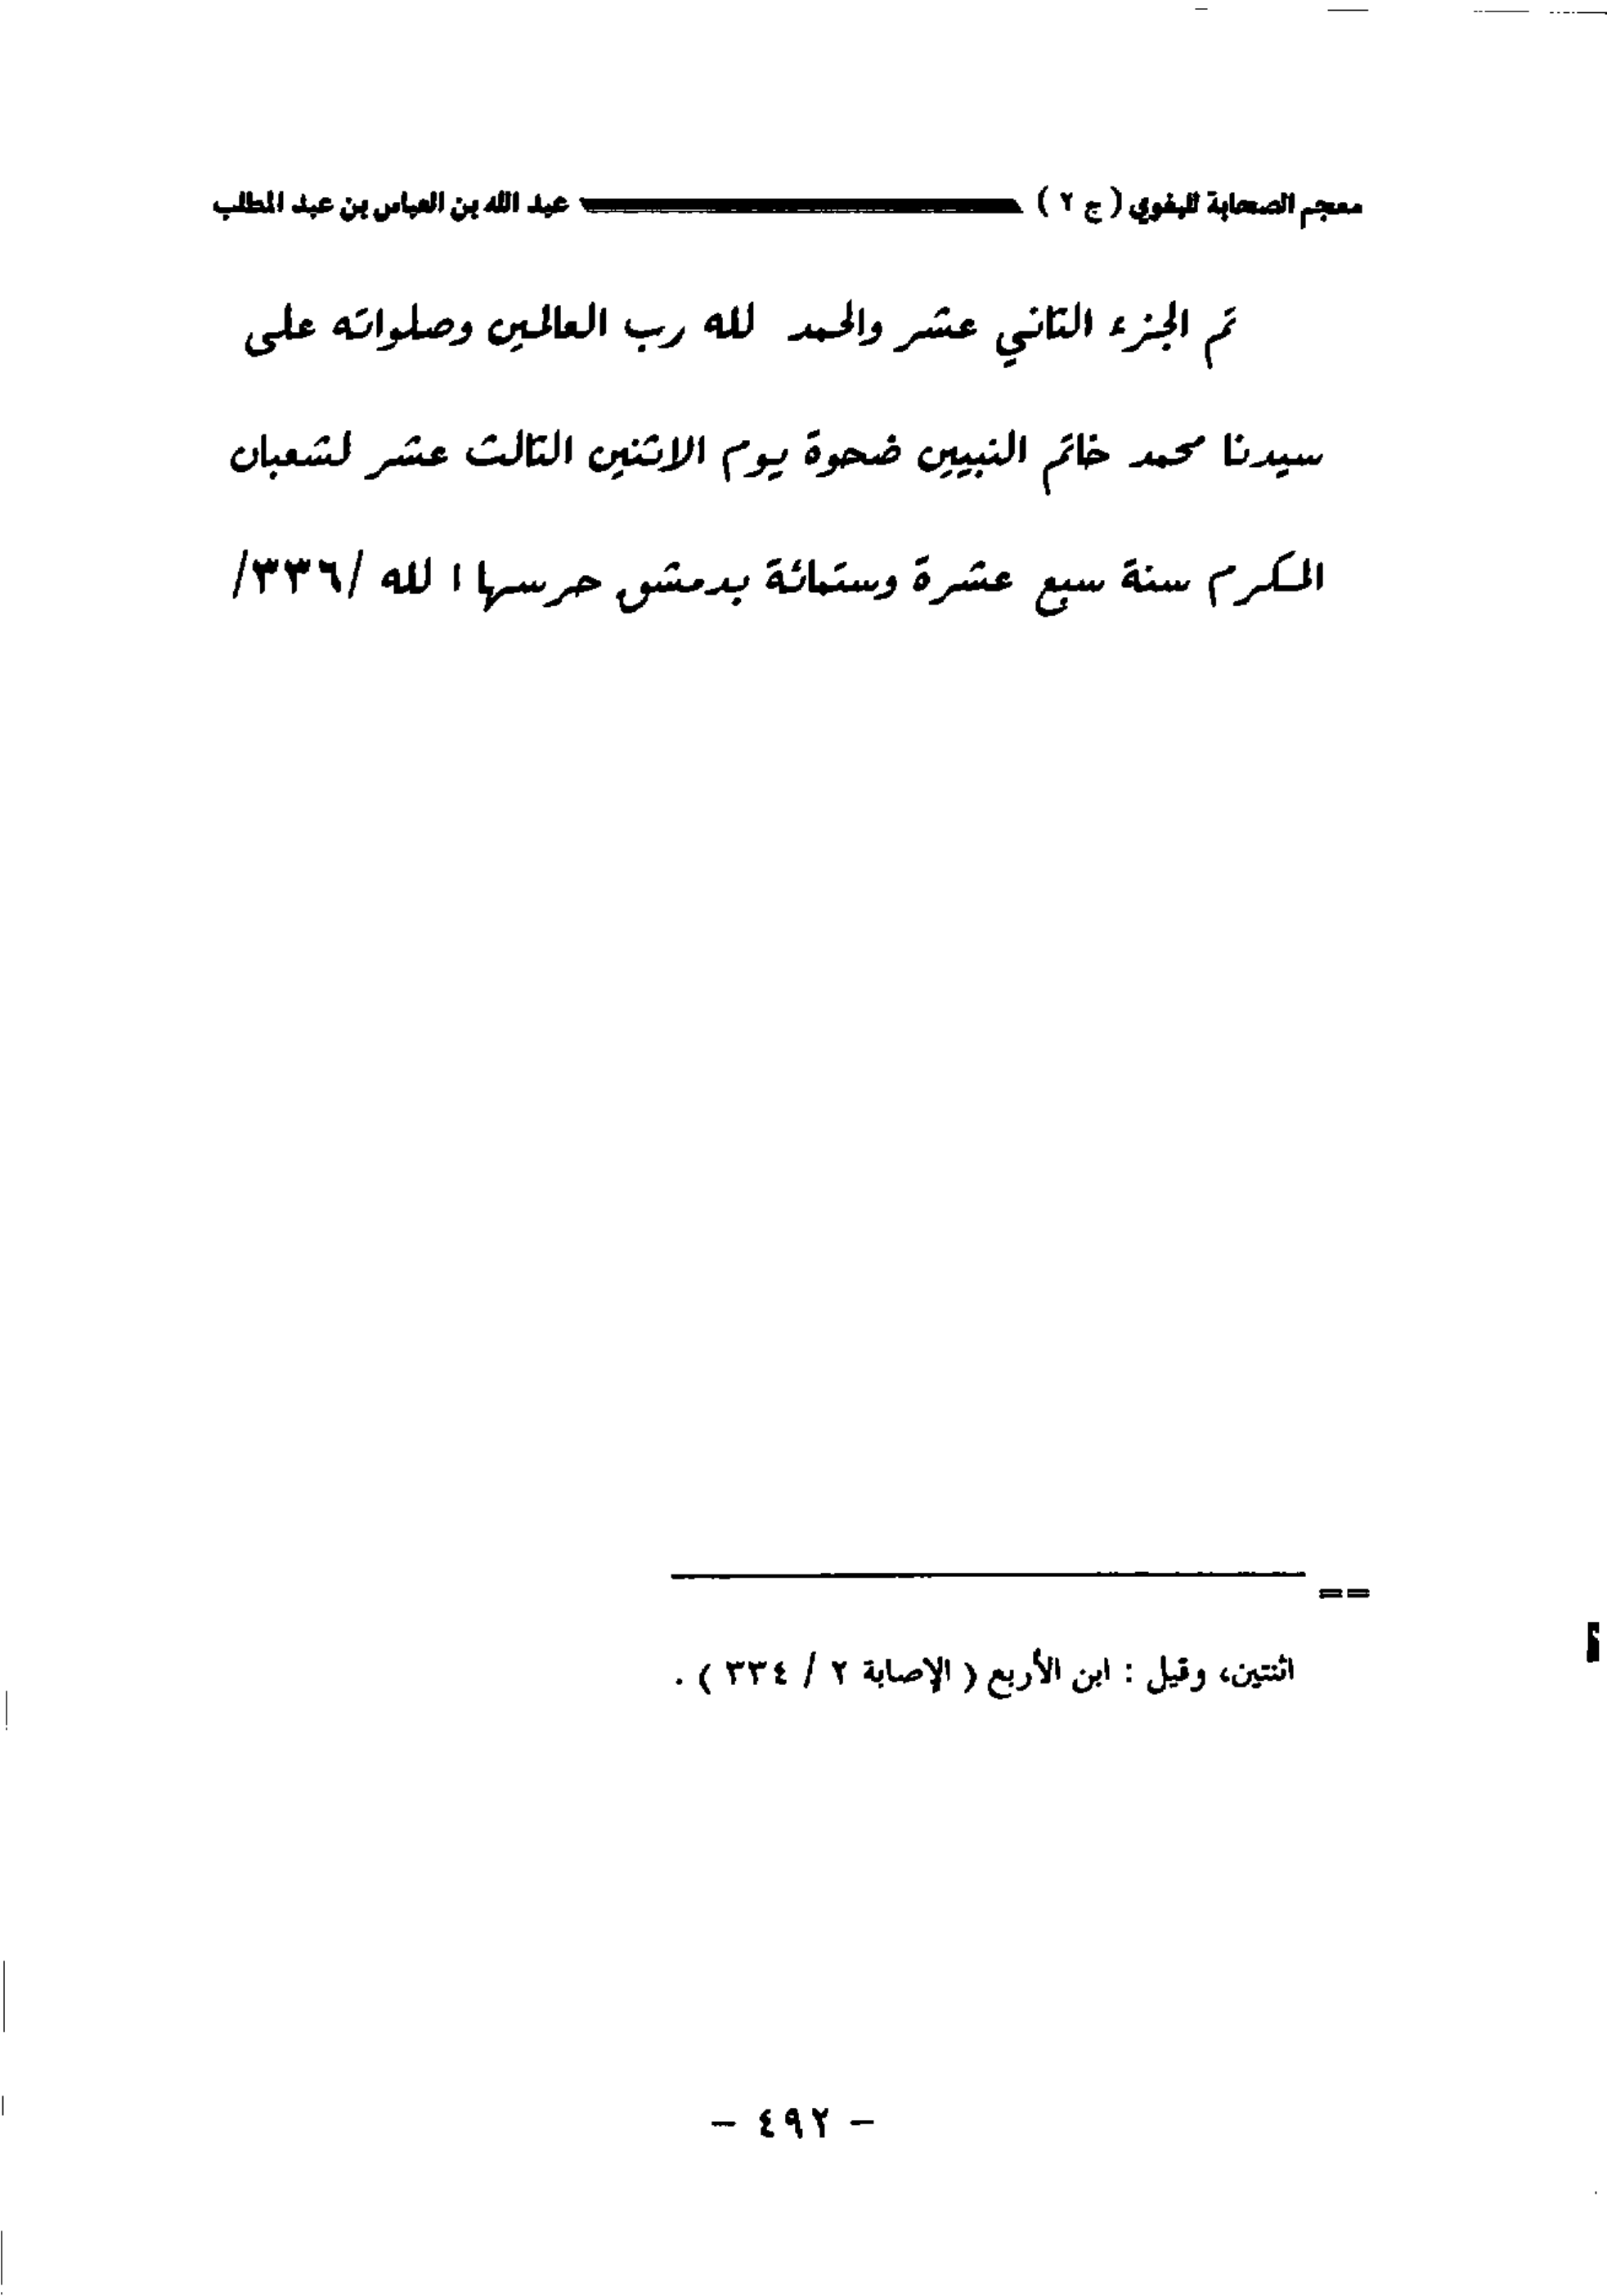 معجم الصحابة للبغوي ( ج ٢ ) عبد الله بن العباس بن عبد المطلب
تم الجزء الثاني عشر والحمد لله رب العالمين وصلواته على
سيدنا محمد خاتم النبيين ضحوة يوم الاثنين الثالث عشر لشعبان
المكرم سنة سبع عشرة وستمائة بدمشق حرسها الله /٣٣٦/
==
اثنتين، وقيل : ابن الأربع ( الإصابة ٢ / ٣٣٤ ) .
– ٤٩٢ –